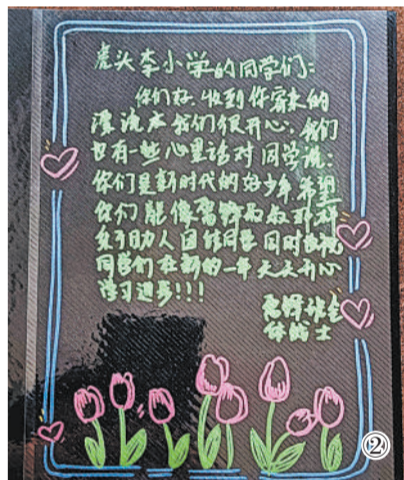 虎头李小学的同学们:
你们好,收到你寄来的
漂流本我们很开心,我们
也有一些心里话对同学说:
你们是新时代的好少年,希望
你们能像雷锋叔叔那样
乐于助人团结同学同时也祝
同学们在新的一年天天开心
学习进步!!!
雷锋班全
体战士
②